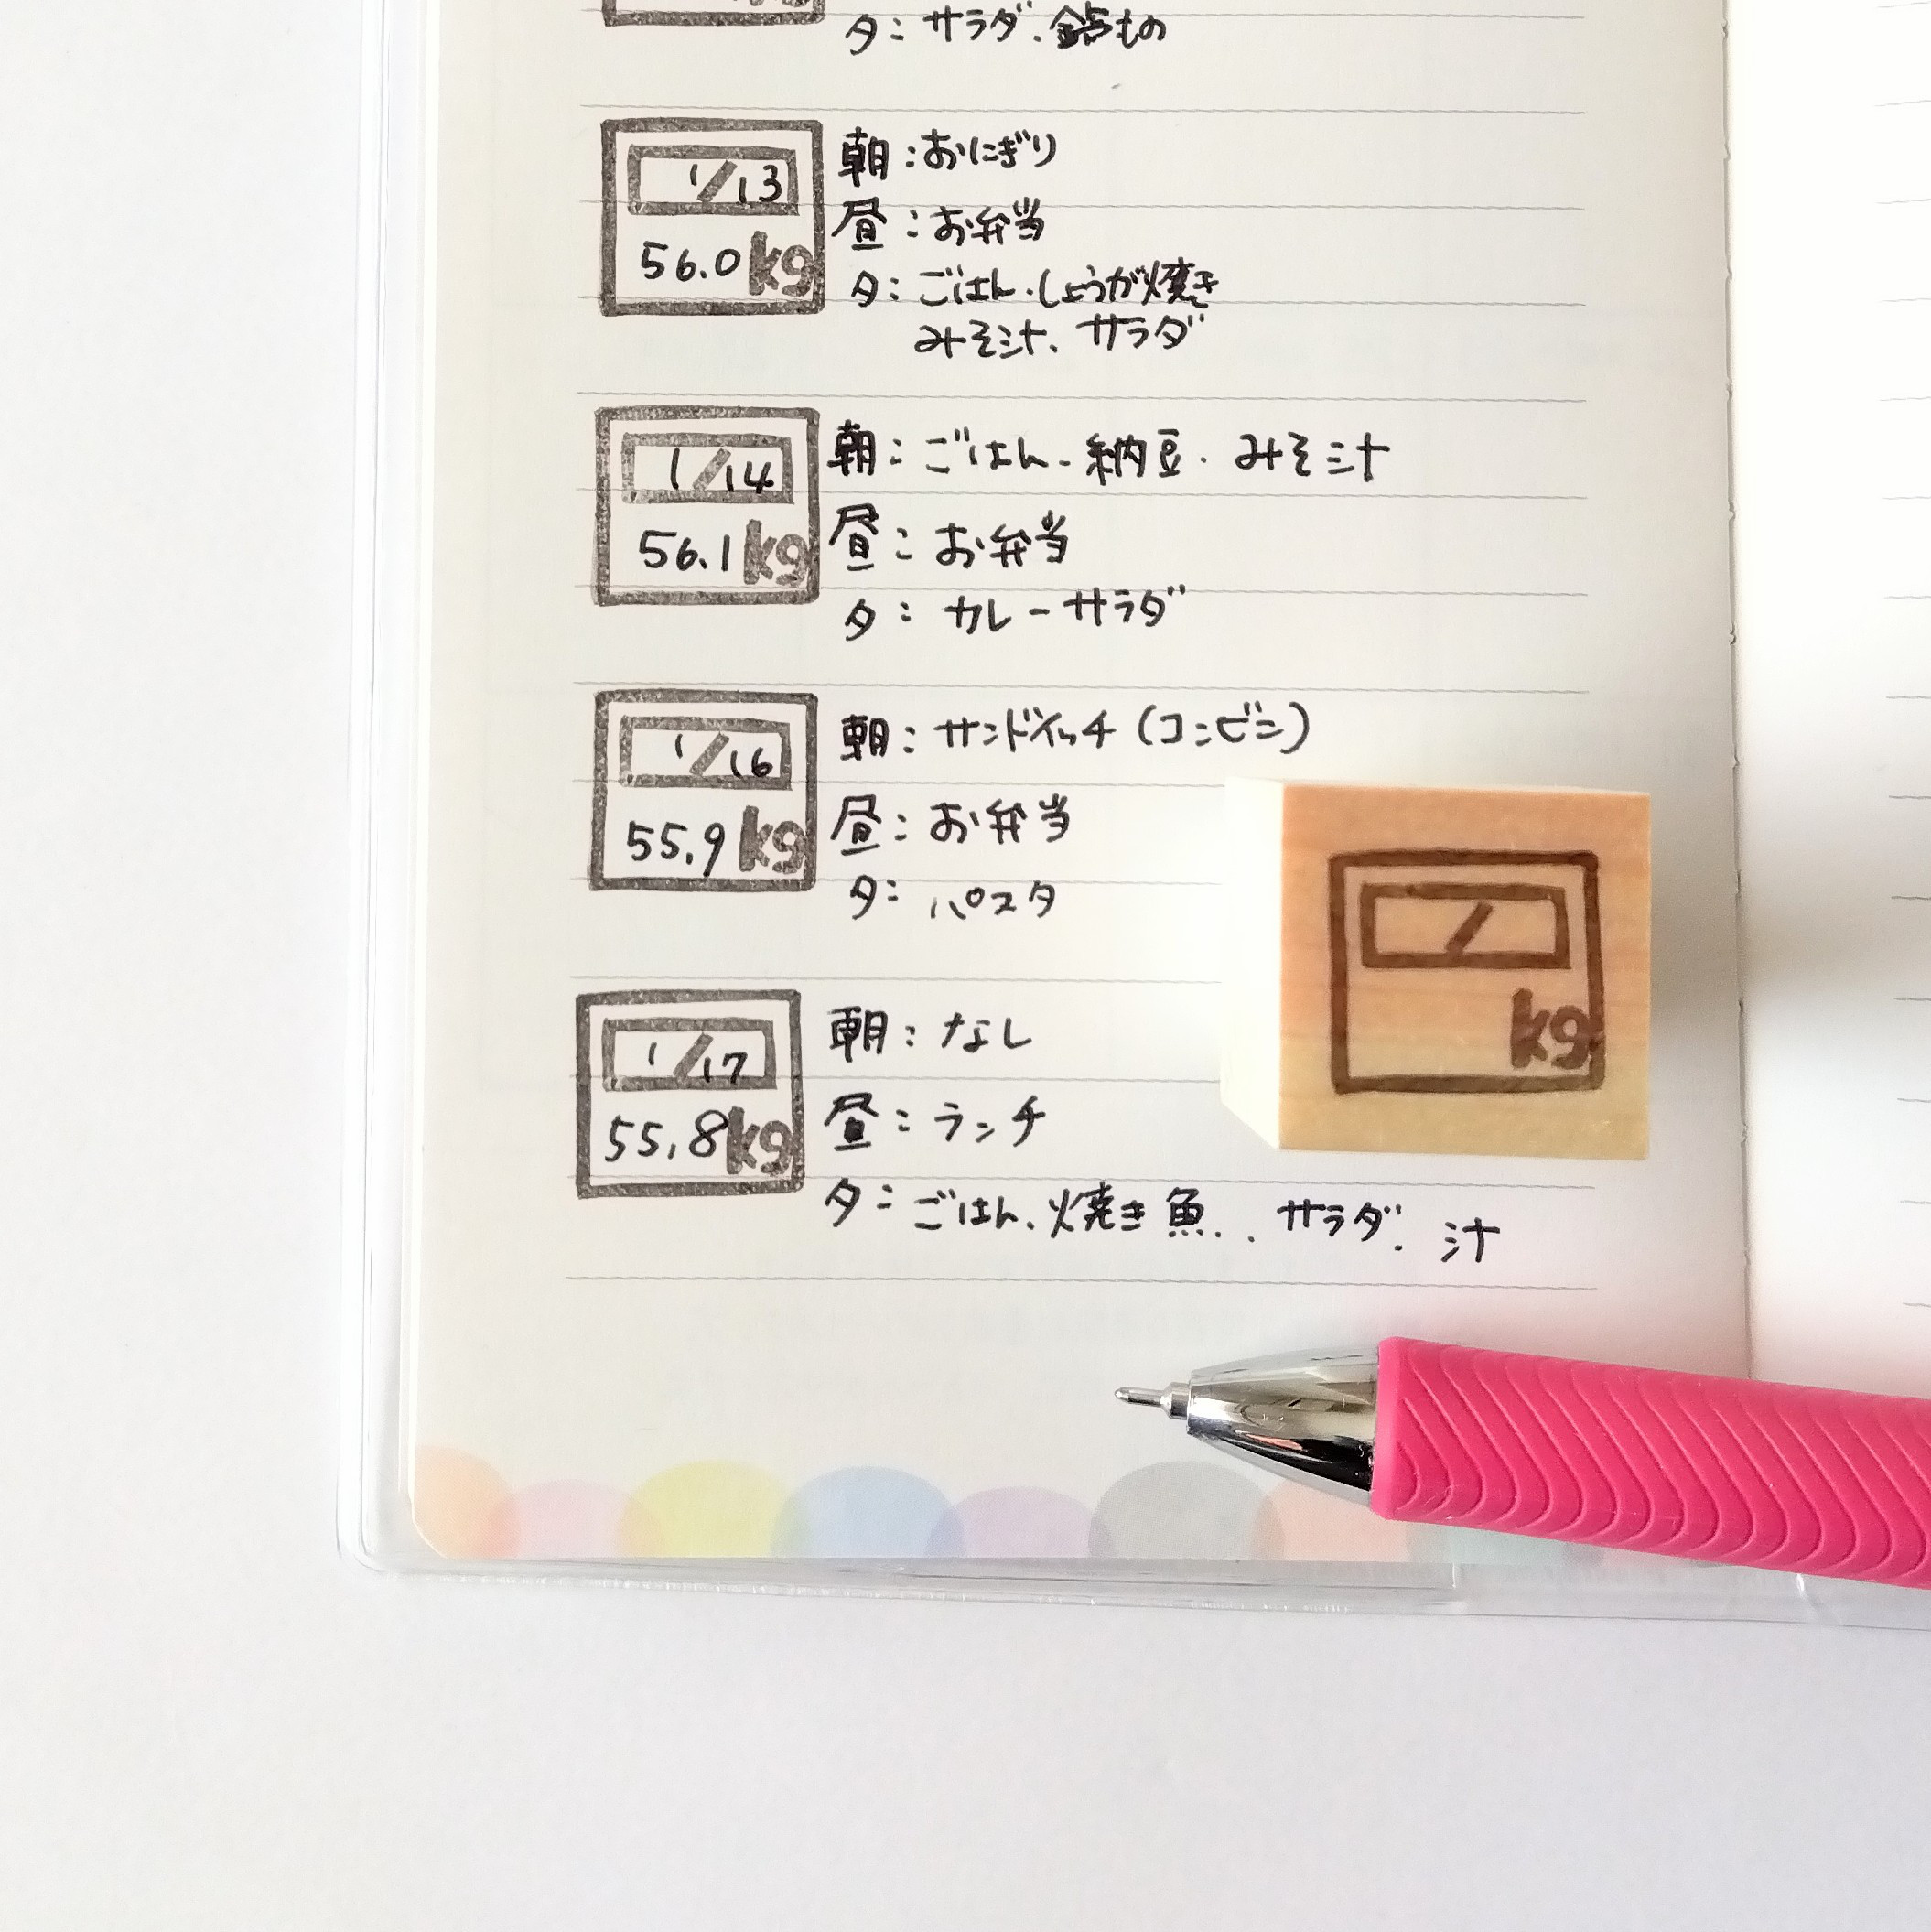 夕：サラダ．鍋もの
1/13
56.0kg
朝：おにぎり
昼：お弁当
夕：ごはん．しょうが焼き
みそ汁、サラダ
1/14
56.1kg
朝：ごはん．納豆．みそ汁
昼：お弁当
夕：カレーサラダ
1/16
55.9kg
朝：サンドイッチ（コンビニ）
昼：お弁当
夕：パスタ
1/17
55.8kg
朝：なし
昼：ランチ
夕：ごはん、焼き魚．．サラダ．汁
/
kg